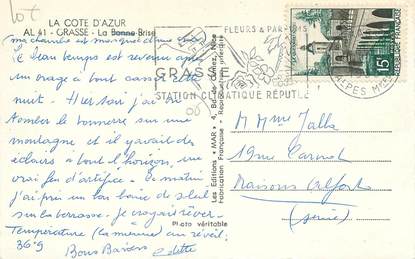 Lot
LA COTE D'AZUR
AL 41 - GRASSE - La Bonne Brise
ma chambre est marquée d'une croix
Le beau temps est revenu après
un orage à tout casser cette
nuit. Hier soir j'ai vu
tomber le tonnerre sur une
montagne et il y avait des
éclairs à tout l'horizon, un
vrai feu d'artifice. Ce matin
j'ai pris un bon bain de soleil
sur la terrasse. Je croyais rêver.
Température (la mienne) au réveil:
36°9
Bons Baisers
Odette
Les Editions "MAR" 4, Bd de Cimiez, Nice
Fabrication Française - Reproduction interdite
Photo véritable
FLEURS & PARFUMS
GRASSE
STATION CLIMATIQUE RÉPUTÉE
ALPES MMES
15F
REPUBLIQUE FRANÇAISE
M Mme Jalls
19 rue Carnot
Maisons Alfort
(Seine)